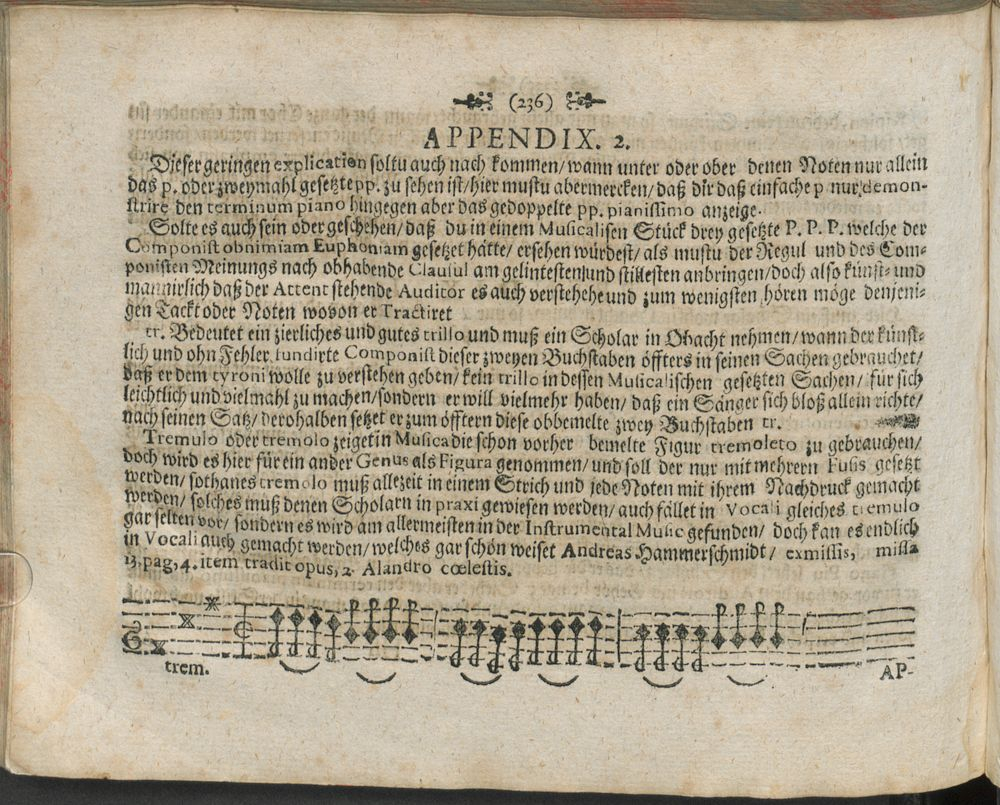 (236)
APPENDIX. 2.
Dieser geringen explication soltu auch nach kommen/ wann unter oder ober denen Noten nur allein
das p. oder zweymahl gesetzte pp. zu sehen ist/ hier mustu abermercken/ daß dir daß einfache p nur demon-
strire den terminum piano hingegen aber das gedoppelte pp. pianissimo anzeige.
Solte es auch sein oder geschehen/ daß du in einem Musicalisen Stück drey gesetzte P. P. P. welche der
Componist obnimiam Euphoniam gesetzet hätte/ ersehen würdest/ als mustu der Regul und des Com-
ponisten Meinungs nach obhabende Clausul am gelintesten und stillesten anbringen/ doch also künst- und
mannirlich daß der Attent stehende Auditor es auch verstehehe und zum wenigsten hören möge denjeni-
gen Tackt oder Noten wovon er Tractiret
tr. Bedeutet ein zierliches und gutes trillo und muß ein Scholar in Obacht nehmen/ wann der künst-
lich und ohn Fehler fundirte Componist dieser zweyen Buchstaben öffters in seinen Sachen gebrauchet/
daß er dem tyroni wolle zu verstehen geben/ kein trillo in dessen Musicalischen gesetzten Sachen/ für sich
leichtlich und vielmahl zu machen/ sondern er will vielmehr haben/ daß ein Sänger sich bloß allein richte/
nach seinen Satz/ derohalben setzet er zum öfftern diese obbemelte zwey Buchstaben tr.
Tremulo oder tremolo zeiget in Musica die schon vorher bemelte Figur tremoleto zu gebrauchen/
doch wird es hier für ein ander Genus als Figura genommen/ und soll der nur mit mehrern Fusis gesetzt
werden/ sothanes tremolo muß allezeit in einem Strich und jede Noten mit ihrem Nachdruck gemacht
werden/ solches muß denen Scholarn in praxi gewiesen werden/ auch fället in Vocali gleiches tremulo
gar selten vor/ sondern es wird am allermeisten in der Instrumental Music gefunden/ doch kan es endlich
in Vocali auch gemacht werden/ welches gar schön weiset Andreas Hammerschmidt/ exmissis, missa
13. pag, 4. item tradit opus, 2. Alandro cœlestis.
trem.
AP-